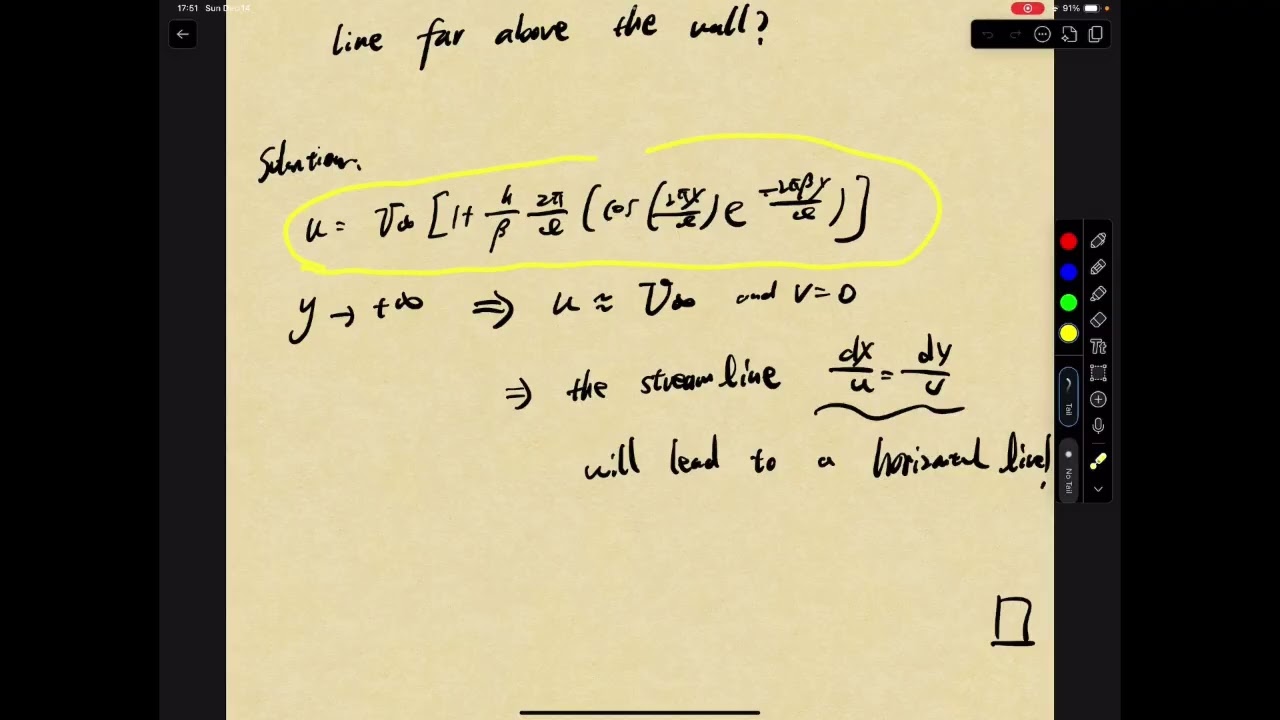 17:51 Sun Dec 14
91%
line far above the wall?
Solution.
u = V∞ [1+ h/β 2π/l (cos(2πx/l) e^(-2πβy/l))]
y → +∞ ⇒ u ≈ V∞ and v=0
⇒ the streamline dx/u = dy/v
will lead to a horizontal line!
Tt
Tail
No Tail